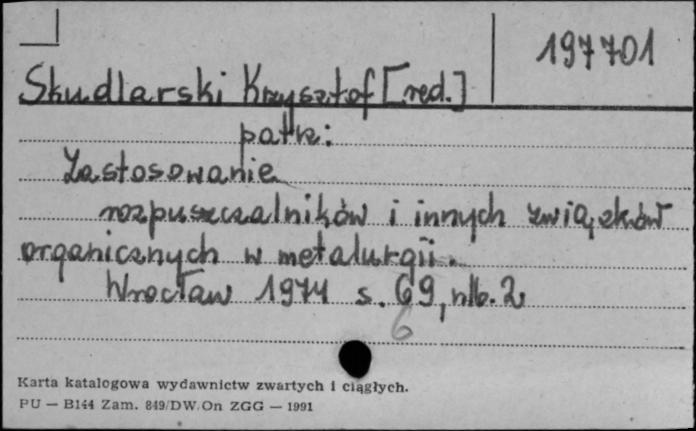 197701
Skudlarski Krzysztof [red.]
patrz:
Zastosowanie
rozpuszczalników i innych związków
organicznych w metalurgii.
Wrocław 1974 s. 69, nlb. 2
6
Karta katalogowa wydawnictw zwartych i ciągłych.
PU — B144 Zam. 849/DW/On ZGG — 1991